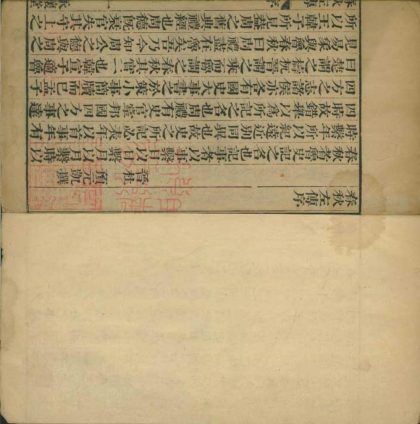 春秋左傳序
晉 杜預元凱 撰
春秋者魯史記之名也記事者以事繫日以日繫月以月繫時以
時繫年所以紀遠近別同異也故史之所記必表年以首事年有
四時故錯舉以為所記之名也周禮有史官掌邦國四方之事達
四方之志諸侯亦各有國史大事書之於策小事簡牘而已孟子
曰楚謂之檮杌晉謂之乘而魯謂之春秋其實一也韓宣子適魯
見易象與魯春秋曰周禮盡在魯矣吾乃今知周公之德與周之
所以王韓子所見蓋周之舊典禮經也周德既衰官失其守上之